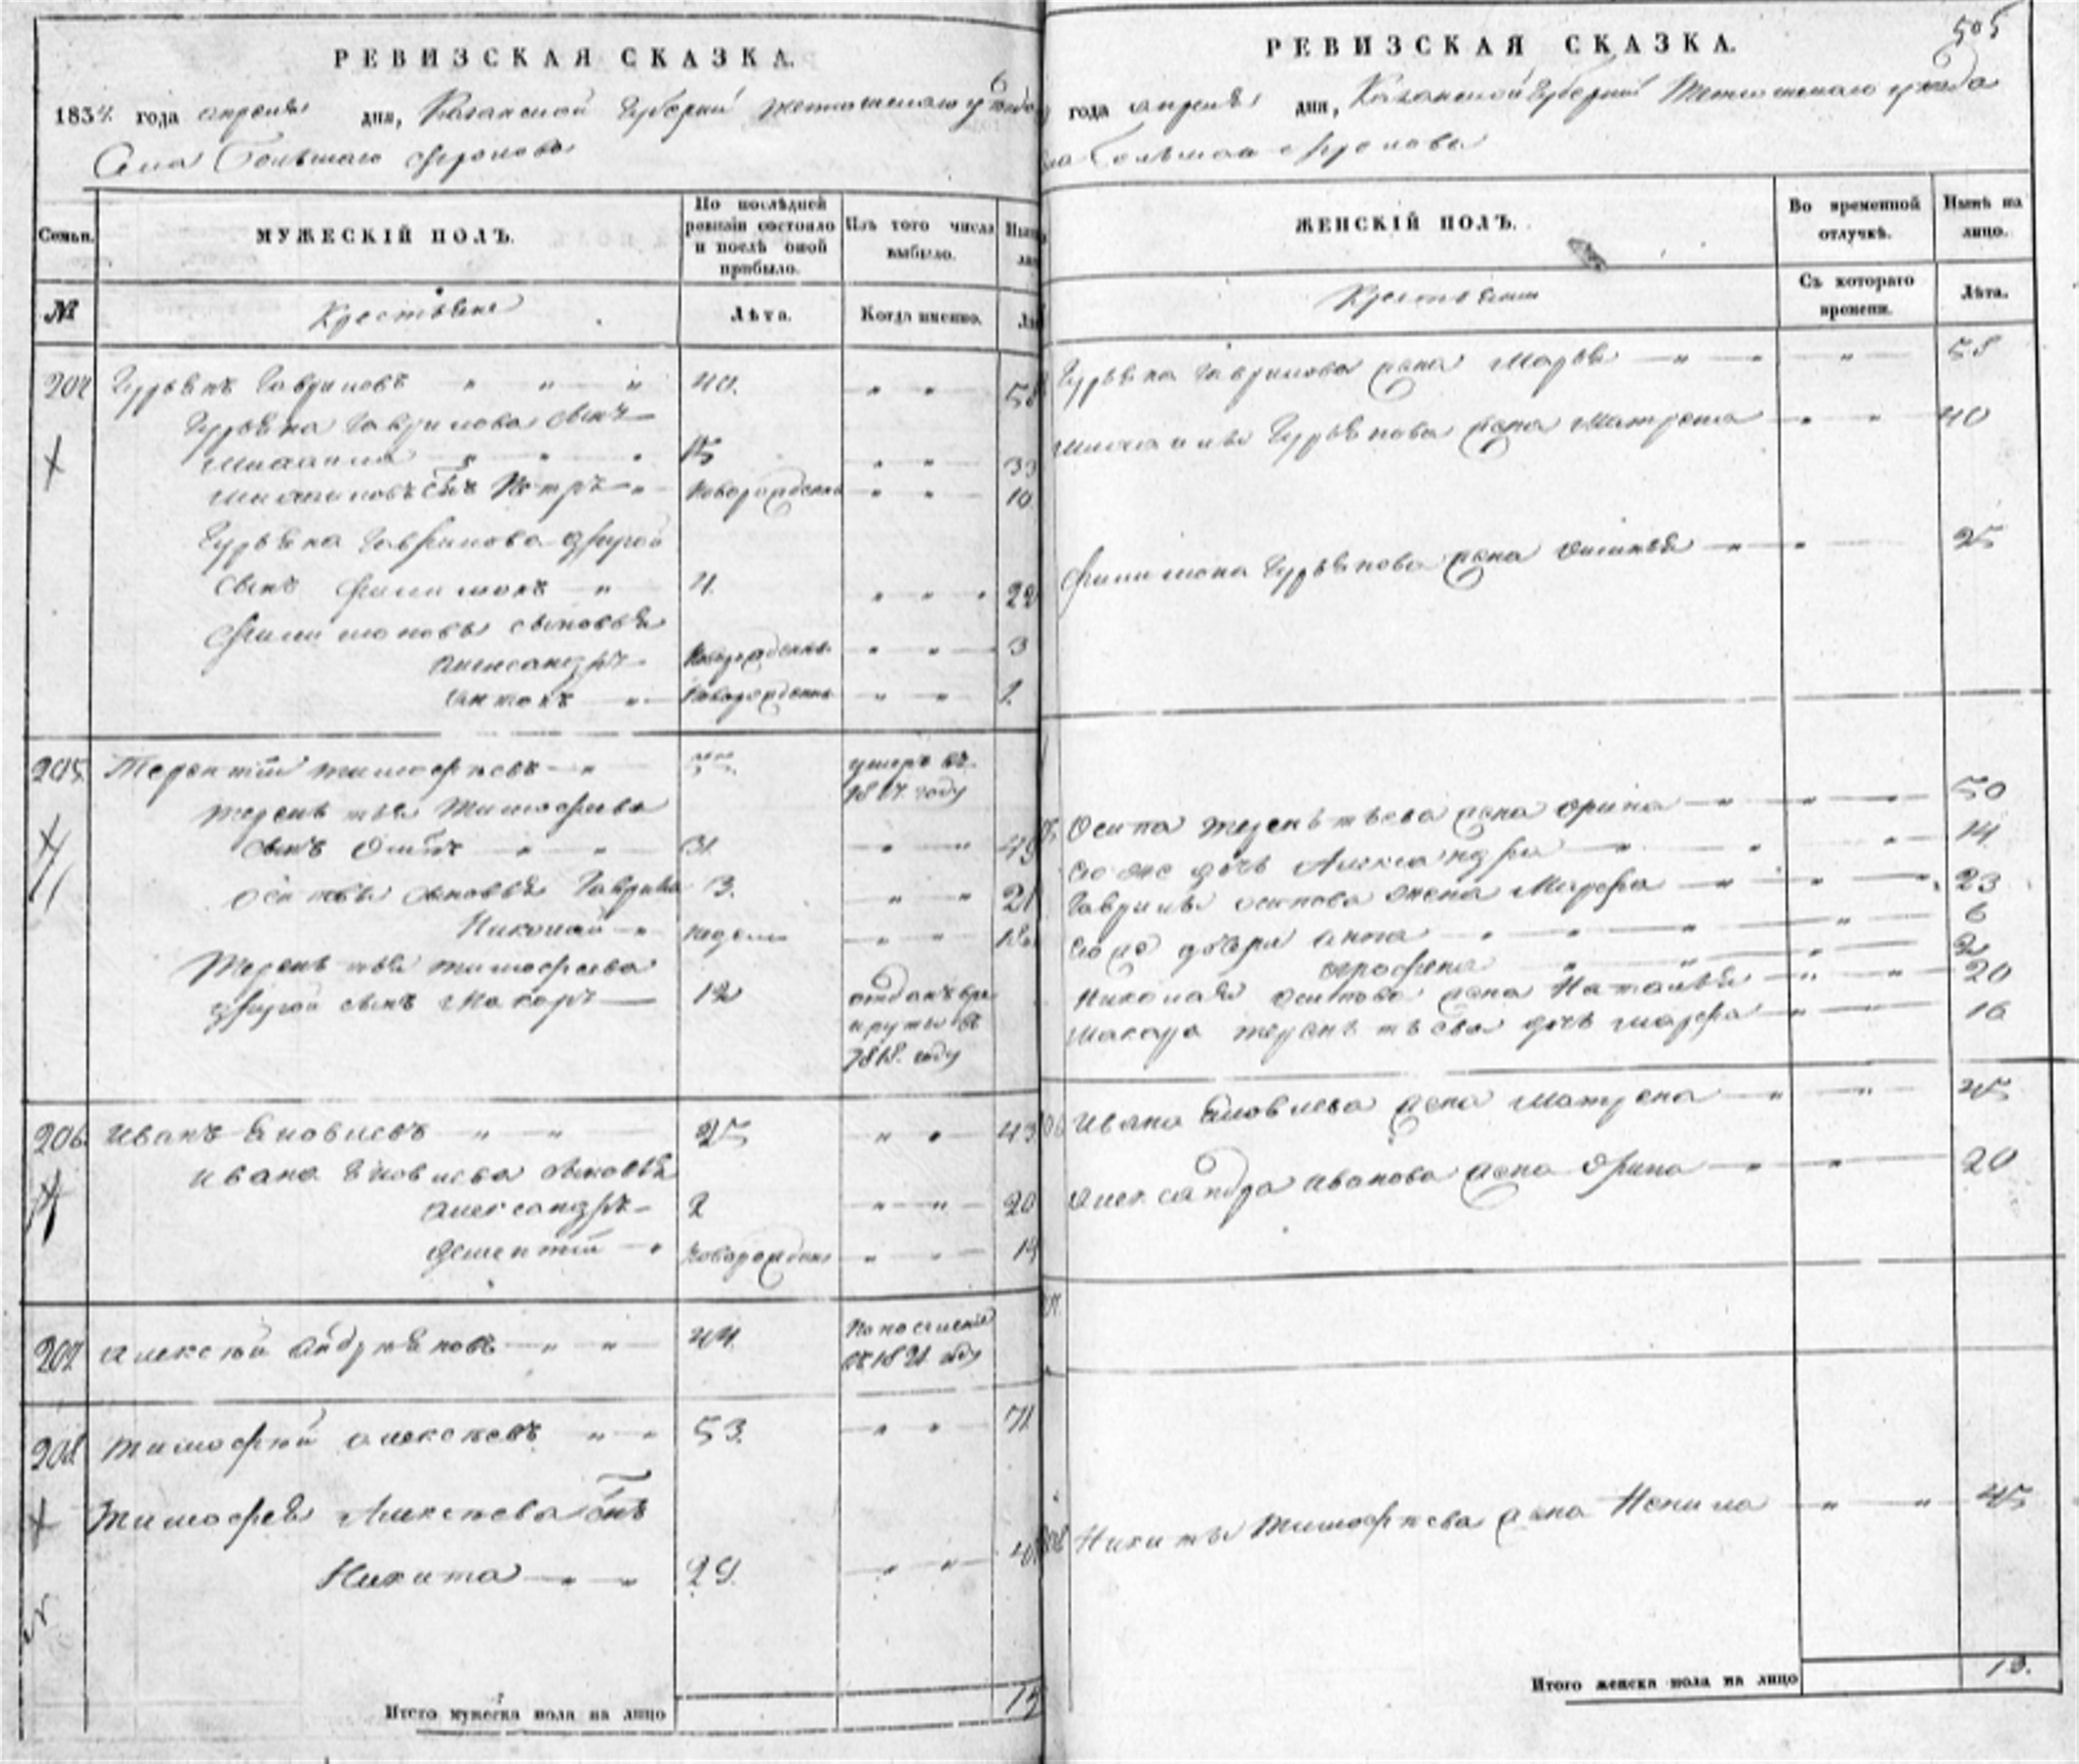 РЕВИЗСКАЯ СКАЗКА.
1834 года апреля дня, Казанской Губерніи Тетюшскаго уѣзда
Села Большаго Фролова
Семьи.
МУЖЕСКІЙ ПОЛЪ.
По послѣдней ревизіи состояло и послѣ оной прибыло.
Изъ того числа выбыло.
№
Крестьяне
Лѣта.
Когда именно.
204 Гурьянъ Гавриловъ " " " 40. " " 58
Гурьяна Гаврилова сынъ
Михаила " " " 15 " " 33
Михайловъ сынъ Петръ " Новорожденъ " " 10
Гурьяна Гаврилова другой
сынъ Филимонъ " 4. " " " 22
Филимоновы сыновья
Александръ Новорожденъ " " 3
Антонъ " Новорожденъ " " 1
205 Терентій Тимофѣевъ " умеръ въ
году
Терентья Тимофеева
сынъ Осипъ " " 31 " " 49
Осиповы сыновья Гаврила 3. " " 21
Николай " недели " " 18
Терентья Тимофеева
другой сынъ Макаръ 12 отданъ въ ре
круты въ
1818. году
206 Иванъ Яковлевъ " " 25 " " 43
Ивана Яковлева сыновья
Александръ 2 " " 20
Дементій " Новорожденъ " "
207 Алексѣй Андреяновъ " " 44. году
208 Тимофѣй Алексѣевъ " " 53. " " 71
Тимофея Алексѣева сынъ
Никита " " 29. " "
Итого мужеска пола на лицо
505
РЕВИЗСКАЯ СКАЗКА.
года апреля дня, Казанской Губерніи Тетюшскаго уѣзда
Большаго Фролова
ЖЕНСКІЙ ПОЛЪ.
Во временной отлучкѣ.
Нынѣ на лицо.
Крестьянки
Съ котораго времени.
Лѣта.
Гурьяна Гаврилова жена Марья " " " 58
Михаилы Гурьянова жена Матрена " " 40
Филимона Гурьянова жена " " 25
Осипа Терентьева жена Орина " " " 50
его же дочь Александра " " " 14
Гаврилы Осипова жена Марфа " " " 23
его же дочери Анна " " " " 6
Огрофена " " " 2
Николая Осипова жена Наталья " " 20
Макара Терентьева дочь Марфа " " 16
Ивана Яковлева жена Матрена " " 45
Александра Иванова жена Орина " " 20
208 Никиты Тимофѣева жена Ненила " " 45
Итого женска пола на лицо 13.